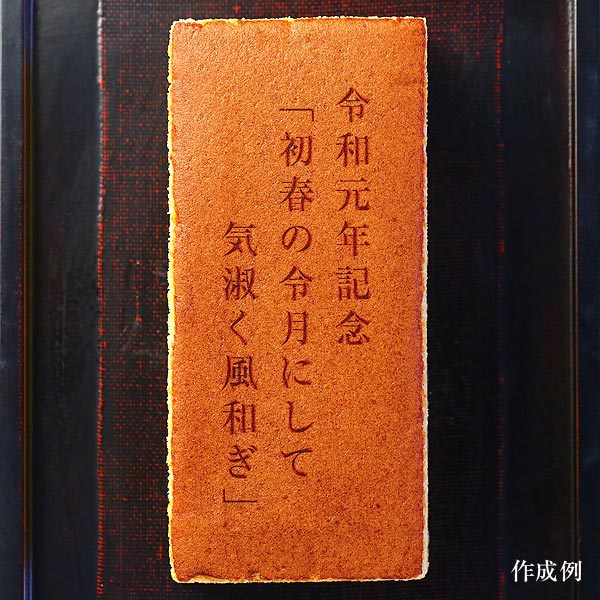 令和元年記念
「初春の令月にして
気淑く風和ぎ」
作成例